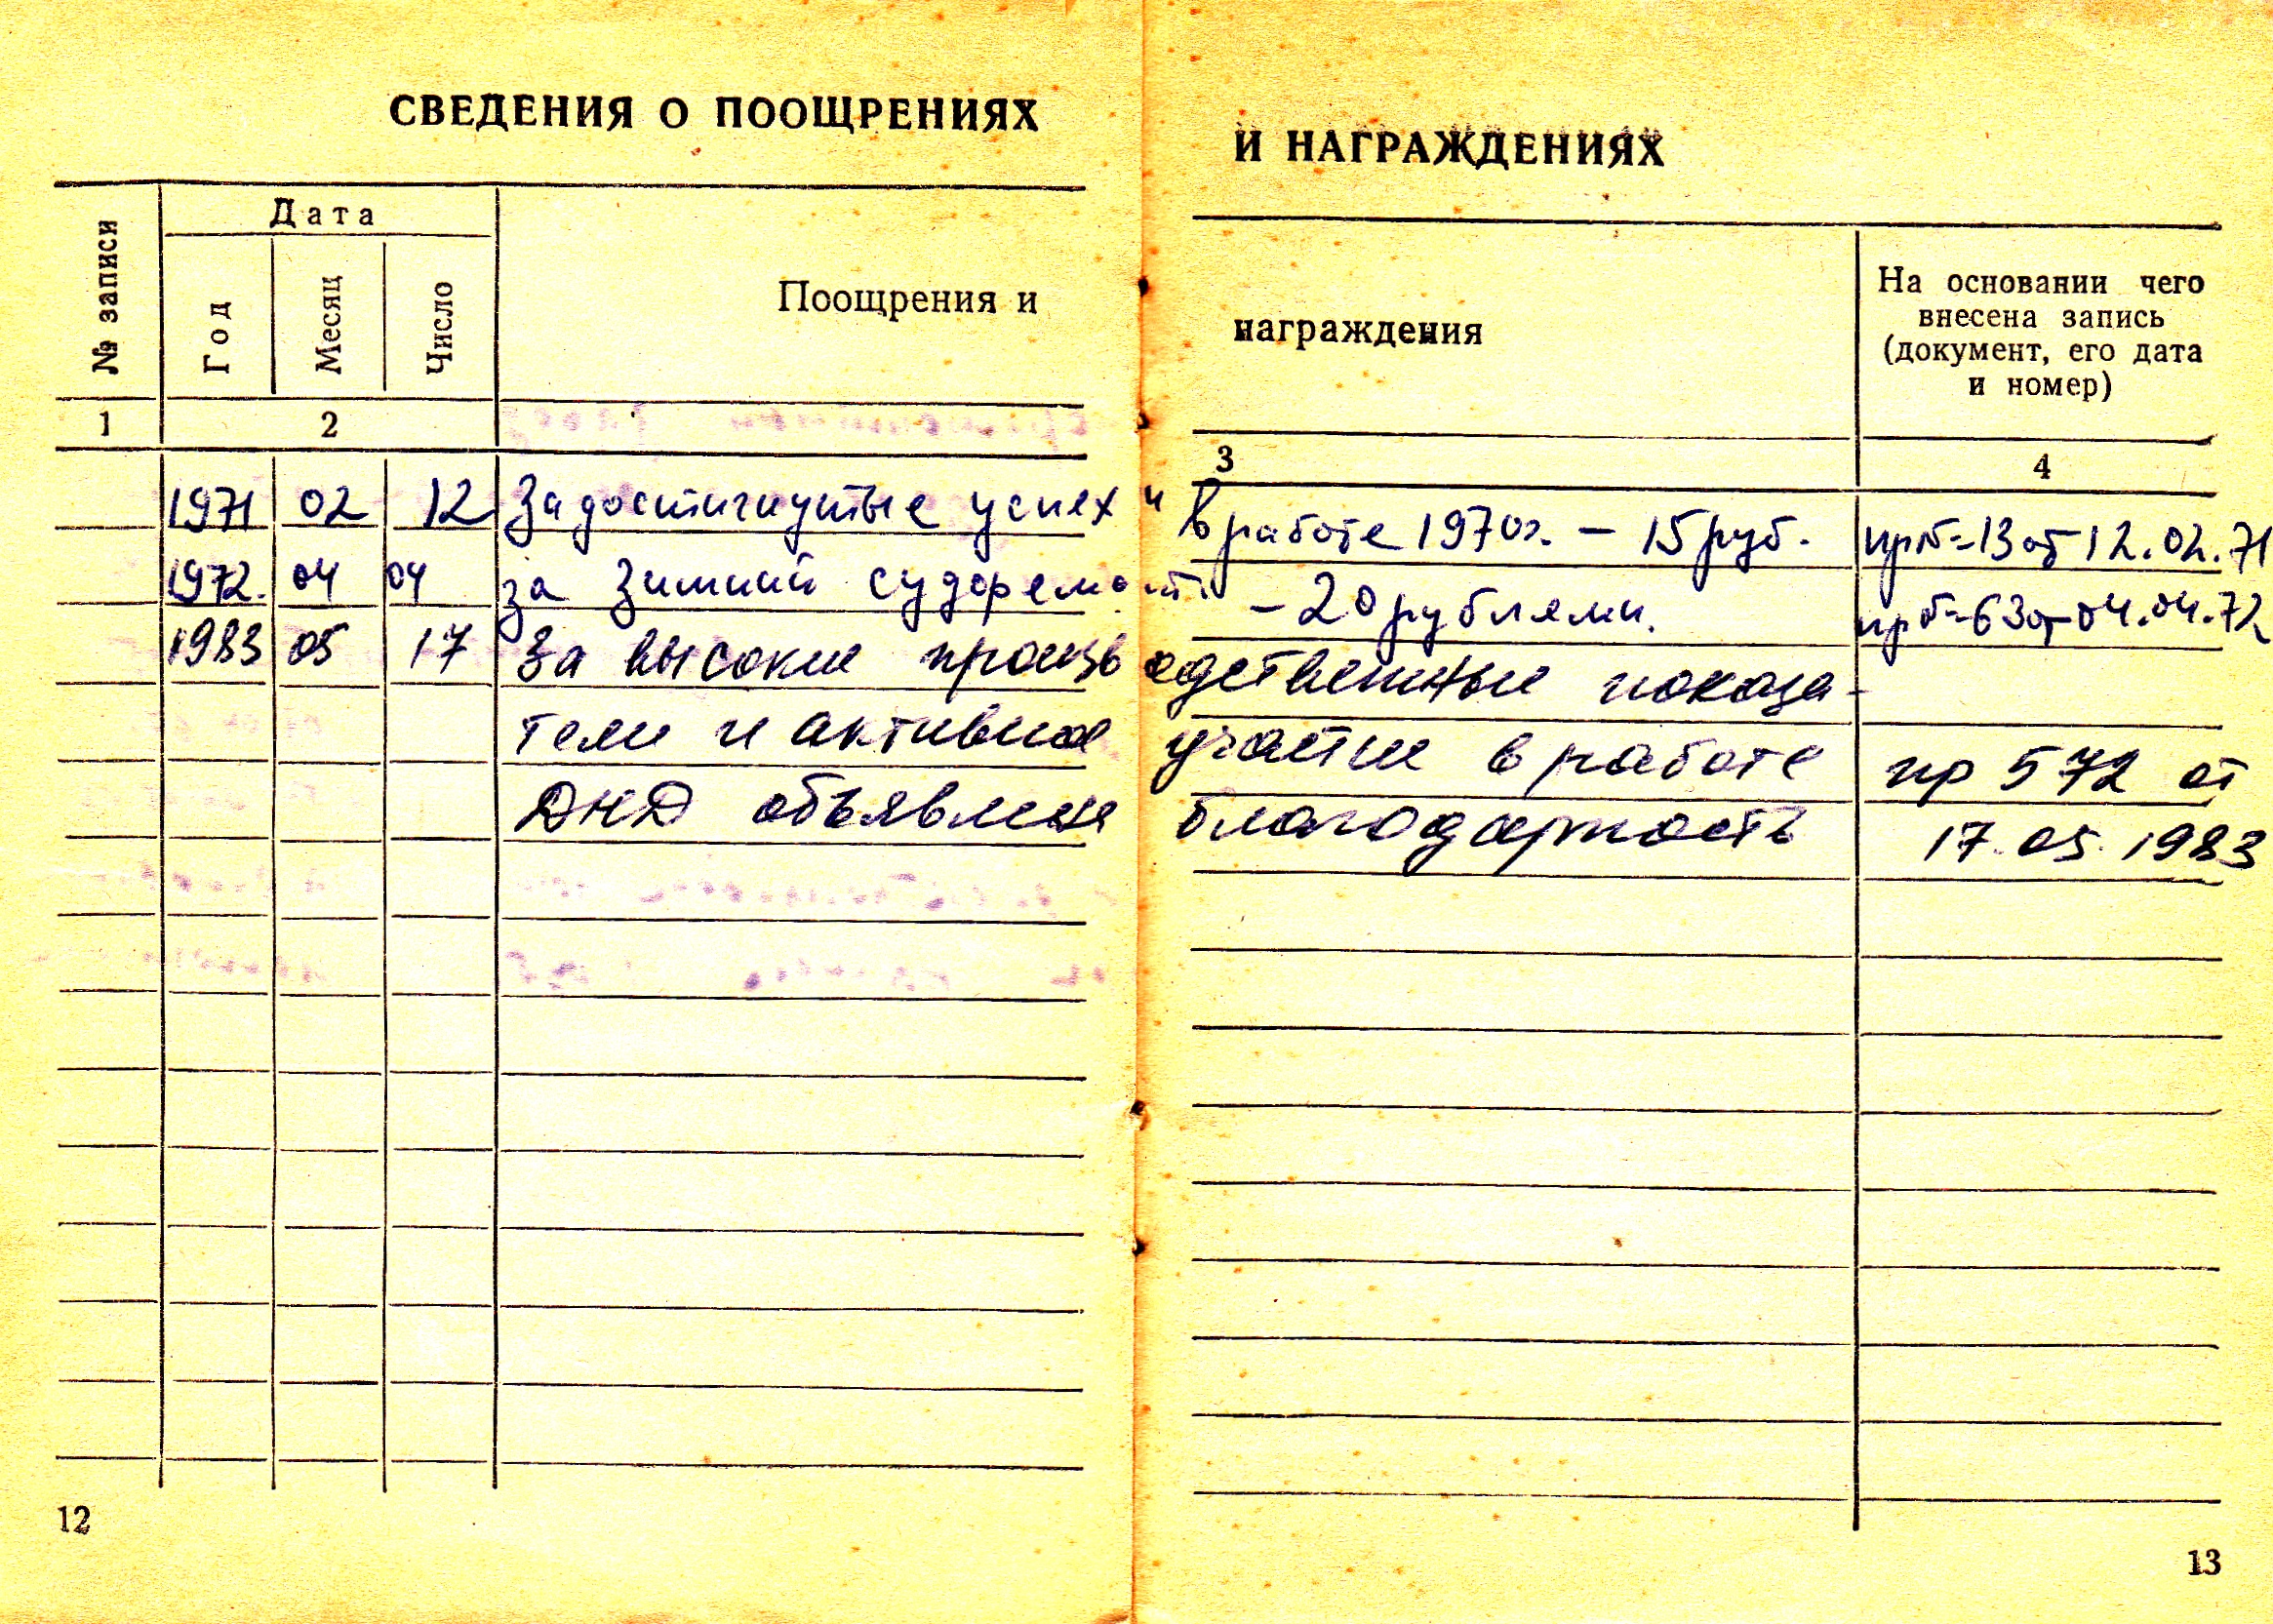 СВЕДЕНИЯ О ПООЩРЕНИЯХ И НАГРАЖДЕНИЯХ
№ записи
Дата
Год
Месяц
Число
Поощрения и награждения
На основании чего
внесена запись
(документ, его дата
и номер)
1 2 3 4
1971 02 12 За достигнутые успехи в работе 1970г. – 15 руб. пр№-13 от 12.02.71
1972. 04 04 за зимний судоремонт – 20 рублями. пр№-63 от 04.04.72
1983 05 17 За высокие производственные показа-
тели и активное участие в работе пр 572 от
ДНД объявлена благодарность 17.05.1983
12
13